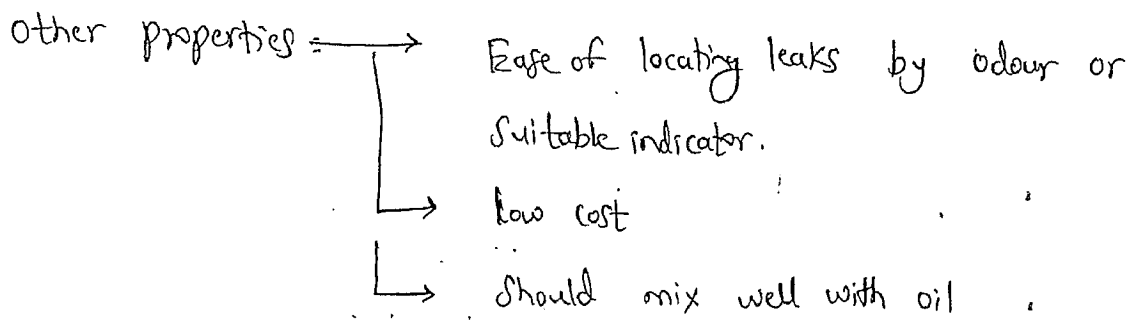 Other properties :→ Ease of locating leaks by odour or
Suitable indicator.
→ low cost
→ Should mix well with oil .